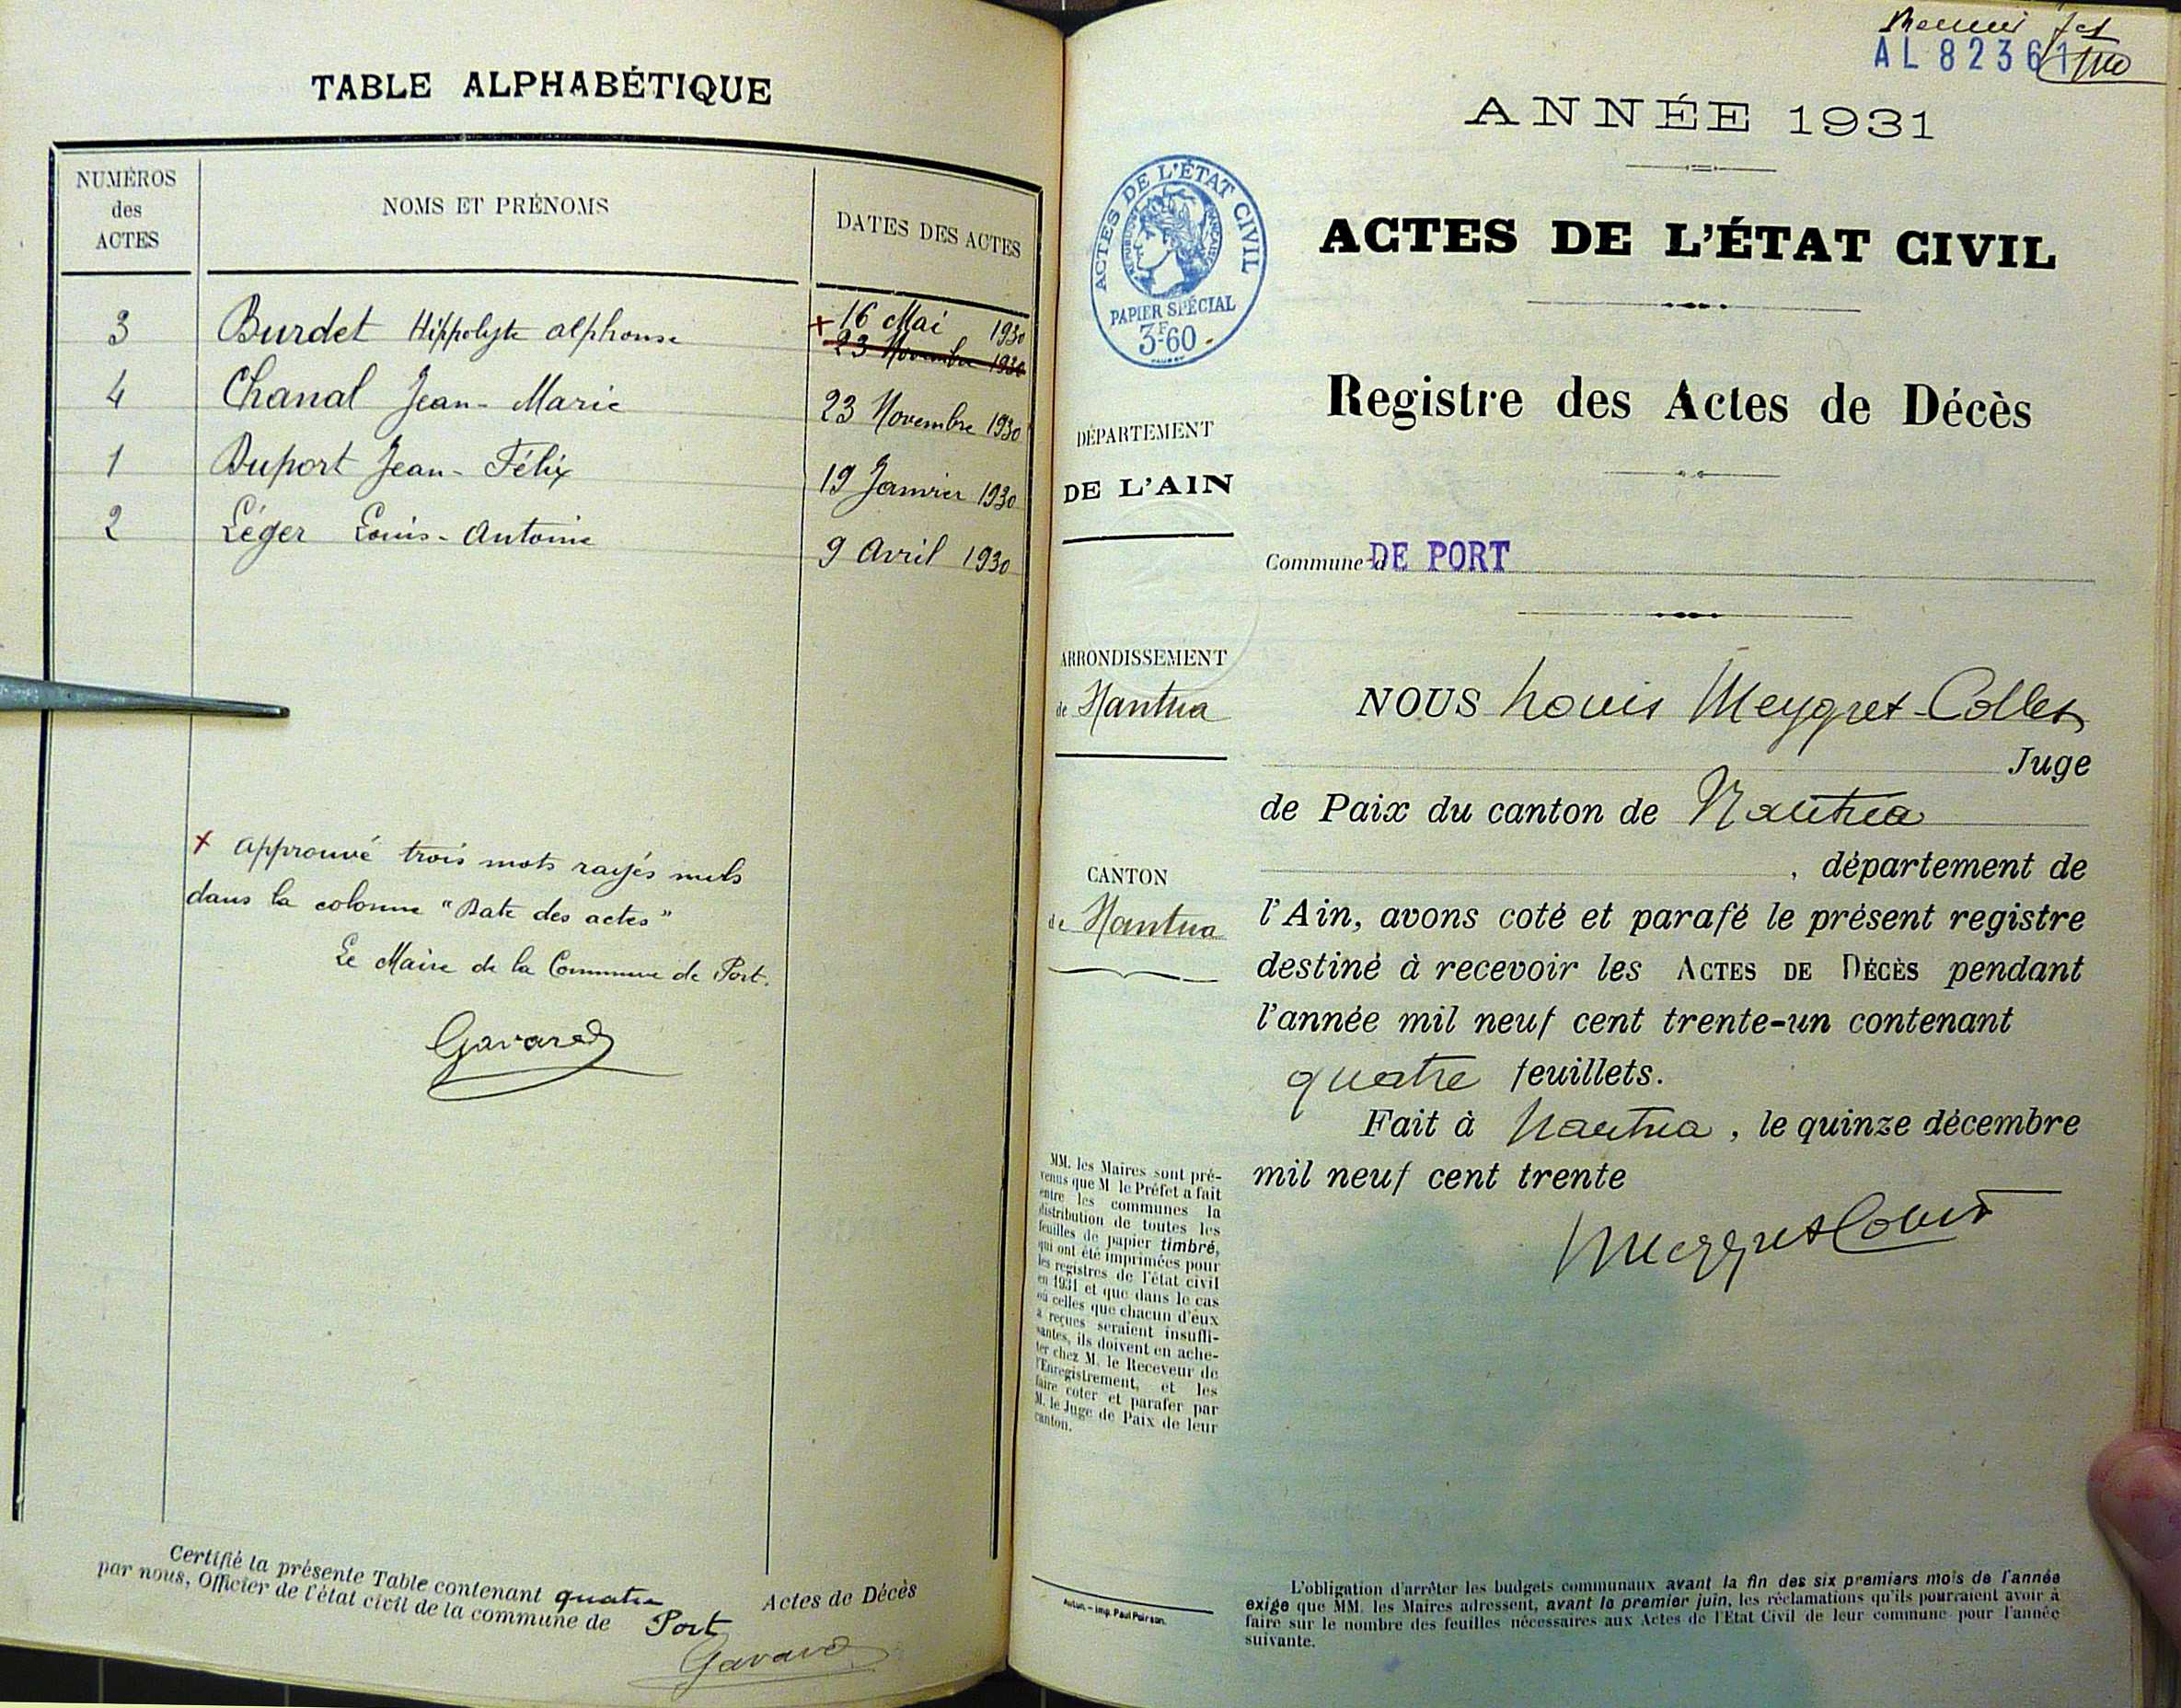 TABLE ALPHABÉTIQUE
NUMÉROS
des
ACTES
NOMS ET PRÉNOMS
DATES DES ACTES
3 Burdet Hippolyte alphonse + 16 Mai 1930
23 Novembre 1930
4 Chanal Jean-Marie 23 Novembre 1930
1 Duport Jean-Félix 19 Janvier 1930
2 Léger Louis-Antoine 9 Avril 1930
+ approuvé trois mots rayés nuls
dans la colonne "Date des actes"
Le Maire de la Commune de Port.
Gavard
Certifié la présente Table contenant quatre Actes de Décès
par nous, Officier de l'état civil de la commune de Port
Gavard
AL 82361
ANNÉE 1931
ACTES DE L'ÉTAT CIVIL
RÉPUBLIQUE FRANÇAISE
PAPIER SPÉCIAL
3F60
ACTES DE L'ÉTAT CIVIL
Registre des Actes de Décès
DÉPARTEMENT
DE L'AIN
Commune d DE PORT
ARRONDISSEMENT
de Nantua
CANTON
de Nantua
NOUS Louis Meygret-Collet
Juge
de Paix du canton de Nantua
, département de
l'Ain, avons coté et parafé le présent registre
destiné à recevoir les ACTES DE DÉCÈS pendant
l'année mil neuf cent trente-un contenant
quatre feuillets.
Fait à Nantua, le quinze décembre
mil neuf cent trente
MeygretCollet
MM. les Maires sont pré-
venus que M le Préfet a fait
entre les communes la
distribution de toutes les
feuilles de papier timbré,
qui ont été imprimées pour
les registres de l'état civil
en 1931 et que dans le cas
où celles que chacun d'eux
a reçues seraient insuffi-
santes, ils doivent en ache-
ter chez M. le Receveur de
l'Enregistrement, et les
faire coter et parafer par
M. le Juge de Paix de leur
canton.
Autun. — Imp. Paul Poirson.
L'obligation d'arrêter les budgets communaux avant la fin des six premiers mois de l'année
exige que MM. les Maires adressent, avant le premier juin, les réclamations qu'ils pourraient avoir à
faire sur le nombre des feuilles nécessaires aux Actes de l'Etat Civil de leur commune pour l'année
suivante.